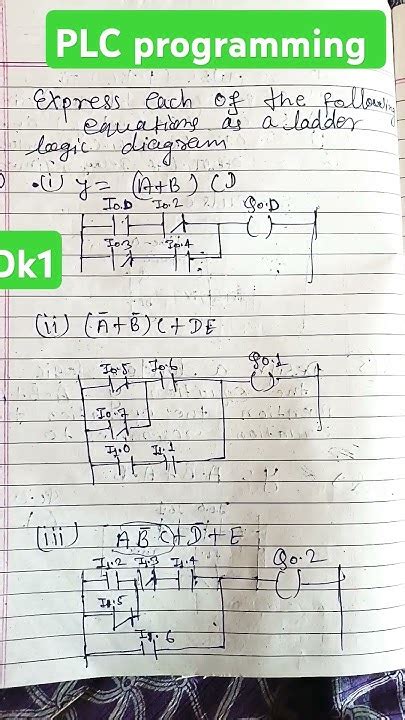 PLC programming
Express each of the following
equations as a ladder
logic diagram
(i) y = (A+B) CD
I0.0 I0.2 Q0.0
I0.3 I0.4
Dk1
(ii) (Ā+B̄) C + DE
I0.5 I0.6 Q0.1
I0.7
I1.0 I1.1
(iii) A B̄ C + D̄ + E
I1.2 I1.3 I1.4 Q0.2
I1.5
I1.6